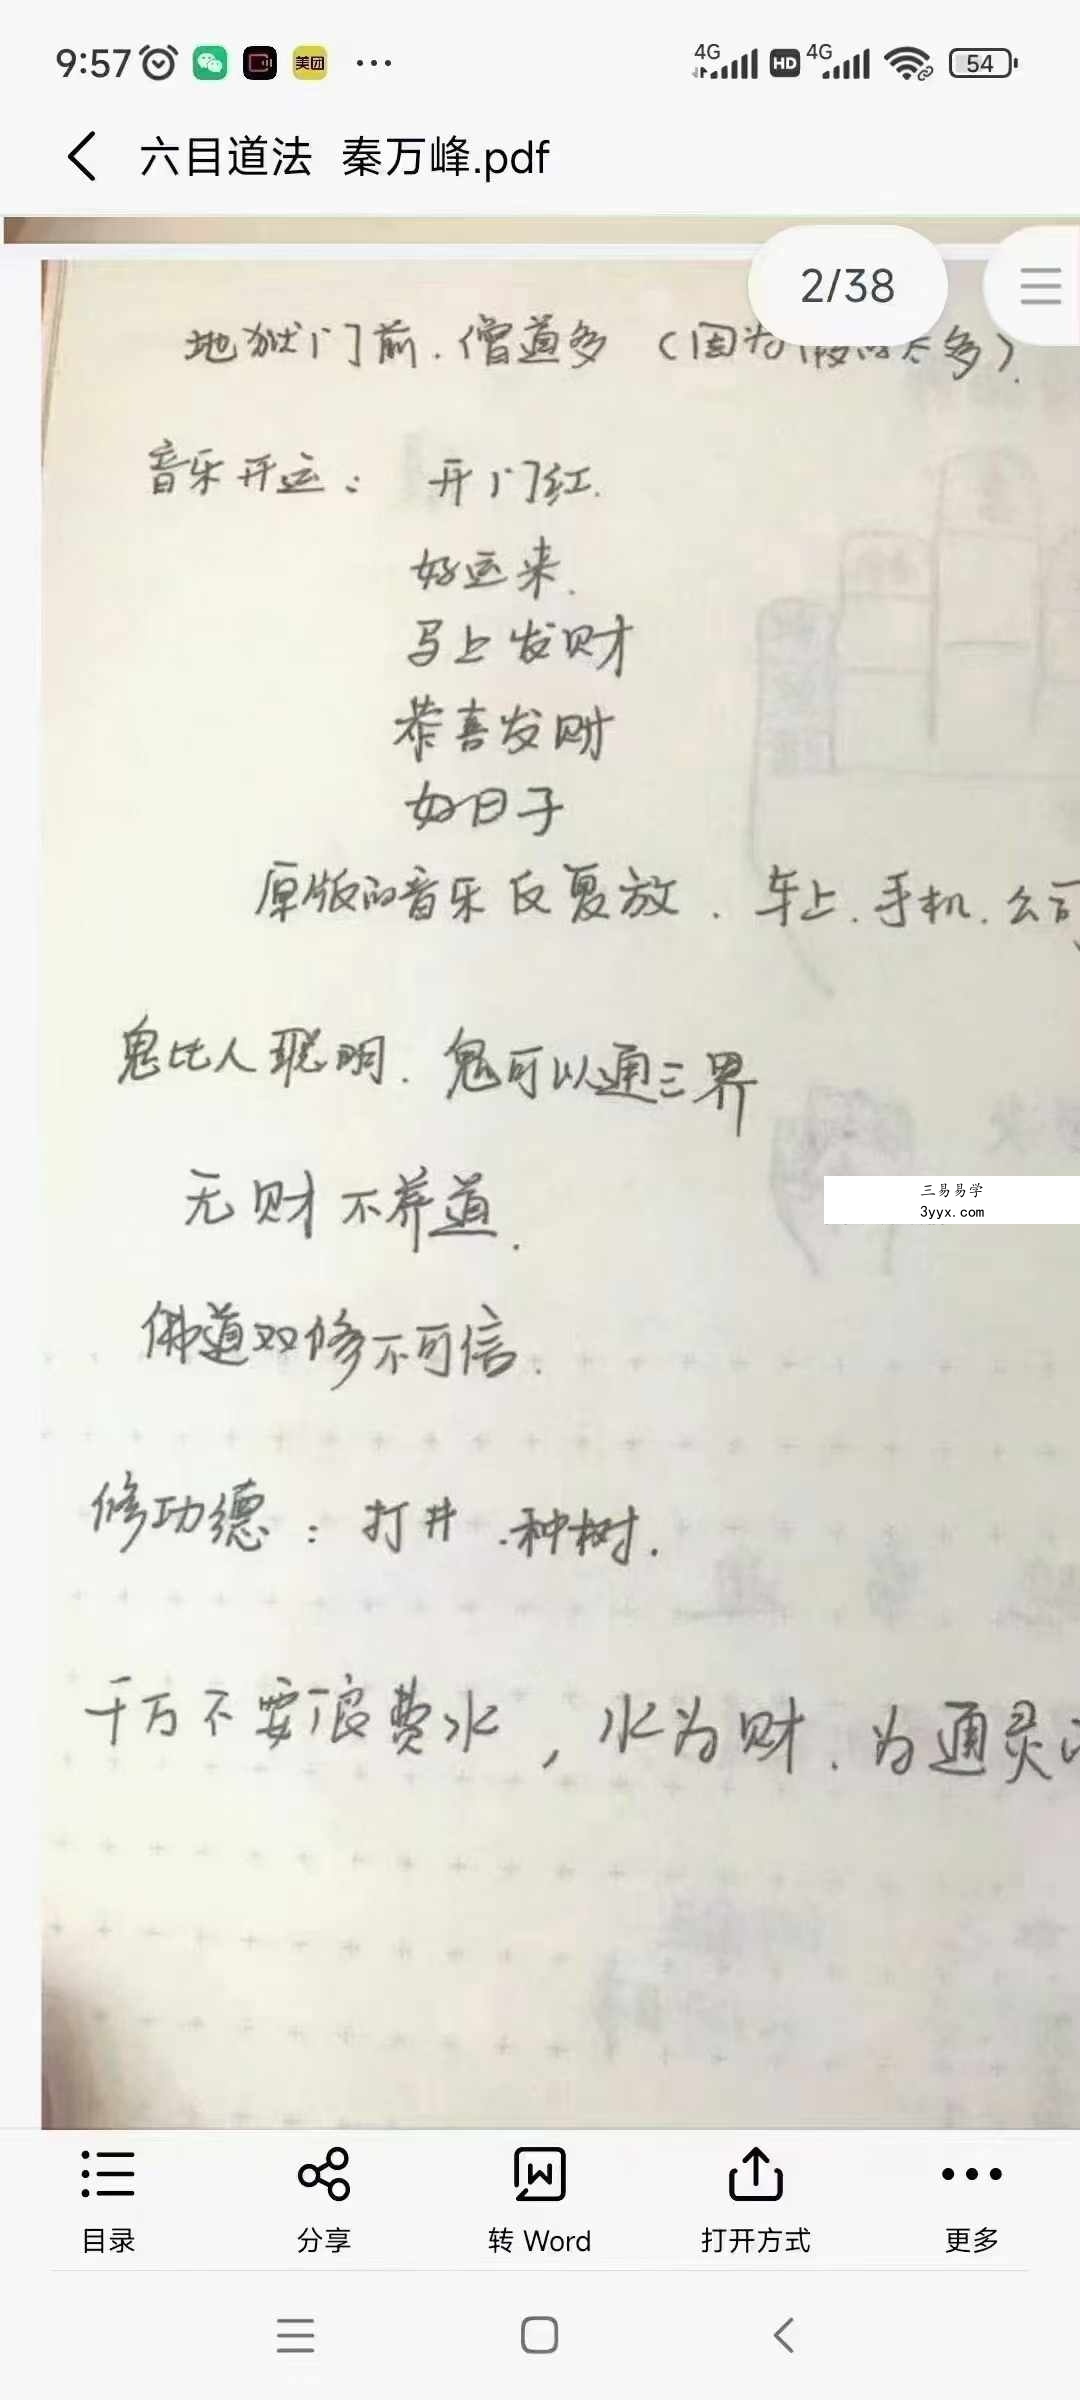 9:57 美团 ... 4G HD 4G 54
六目道法 秦万峰.pdf
2/38
地狱门前.僧道多 (因为假的太多).
音乐开运: 开门红.
好运来.
马上发财
恭喜发财
好日子
原版的音乐反复放.车上.手机.公司
鬼比人聪明.鬼可以通三界
三易易学
3yyx.com
无财不养道.
佛道双修不可信.
修功德:打井.种树.
千万不要浪费水,水为财.为通灵
目录 分享 转 Word 打开方式 更多